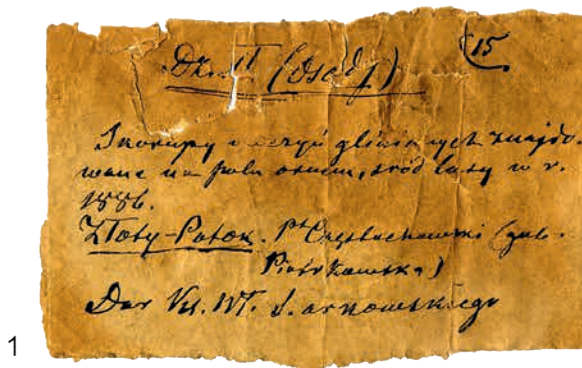 Dz. II (Osady) 15
Skorupy naczyń glinianych znajdo-
wane na polu ornem, śród lasy w r.
1886.
Złoty-Potok. Pt Częstochowski (gub.
Piotrkowska)
Dar Wł.
1